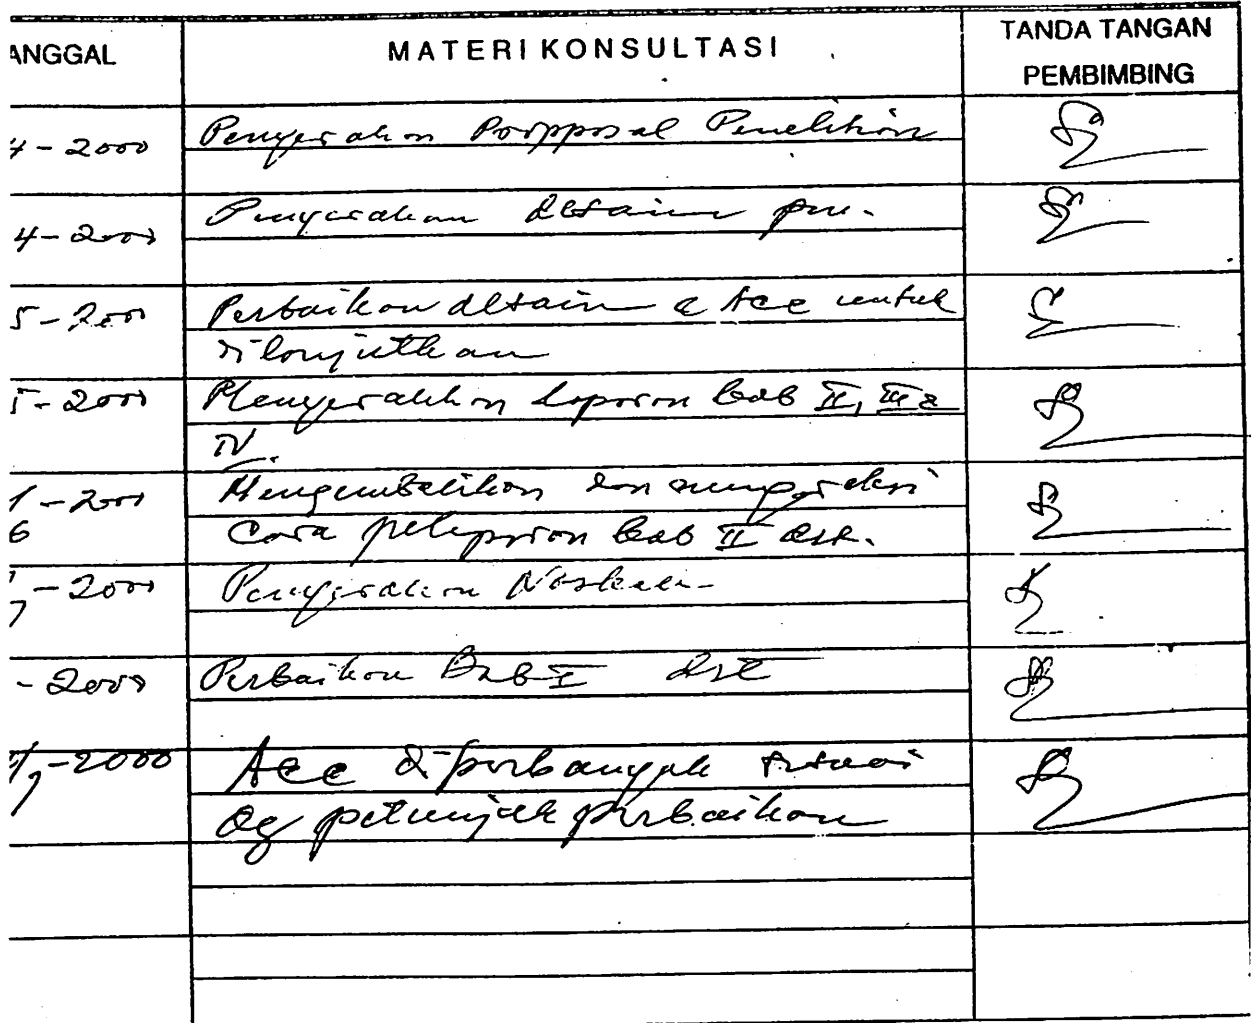 ANGGAL MATERI KONSULTASI TANDA TANGAN
PEMBIMBING
4-2000 Penyerahan Porpposal Penelitian
4-2000 Penyerahan desain pen.
5-2000 Perbaikan desain & Acc untuk
dilanjutkan
5-2000 Menyerahkan laporan bab II, III &
IV.
-2000 Mengembalikan dan mengoreksi
6 Cara pelaporan bab II dst.
-2000 Penyerahan Naskah
7
-2000 Perbaikan Bab I dst
-2000 Acc diperbanyak sesuai
7 dg petunjuk perbaikan